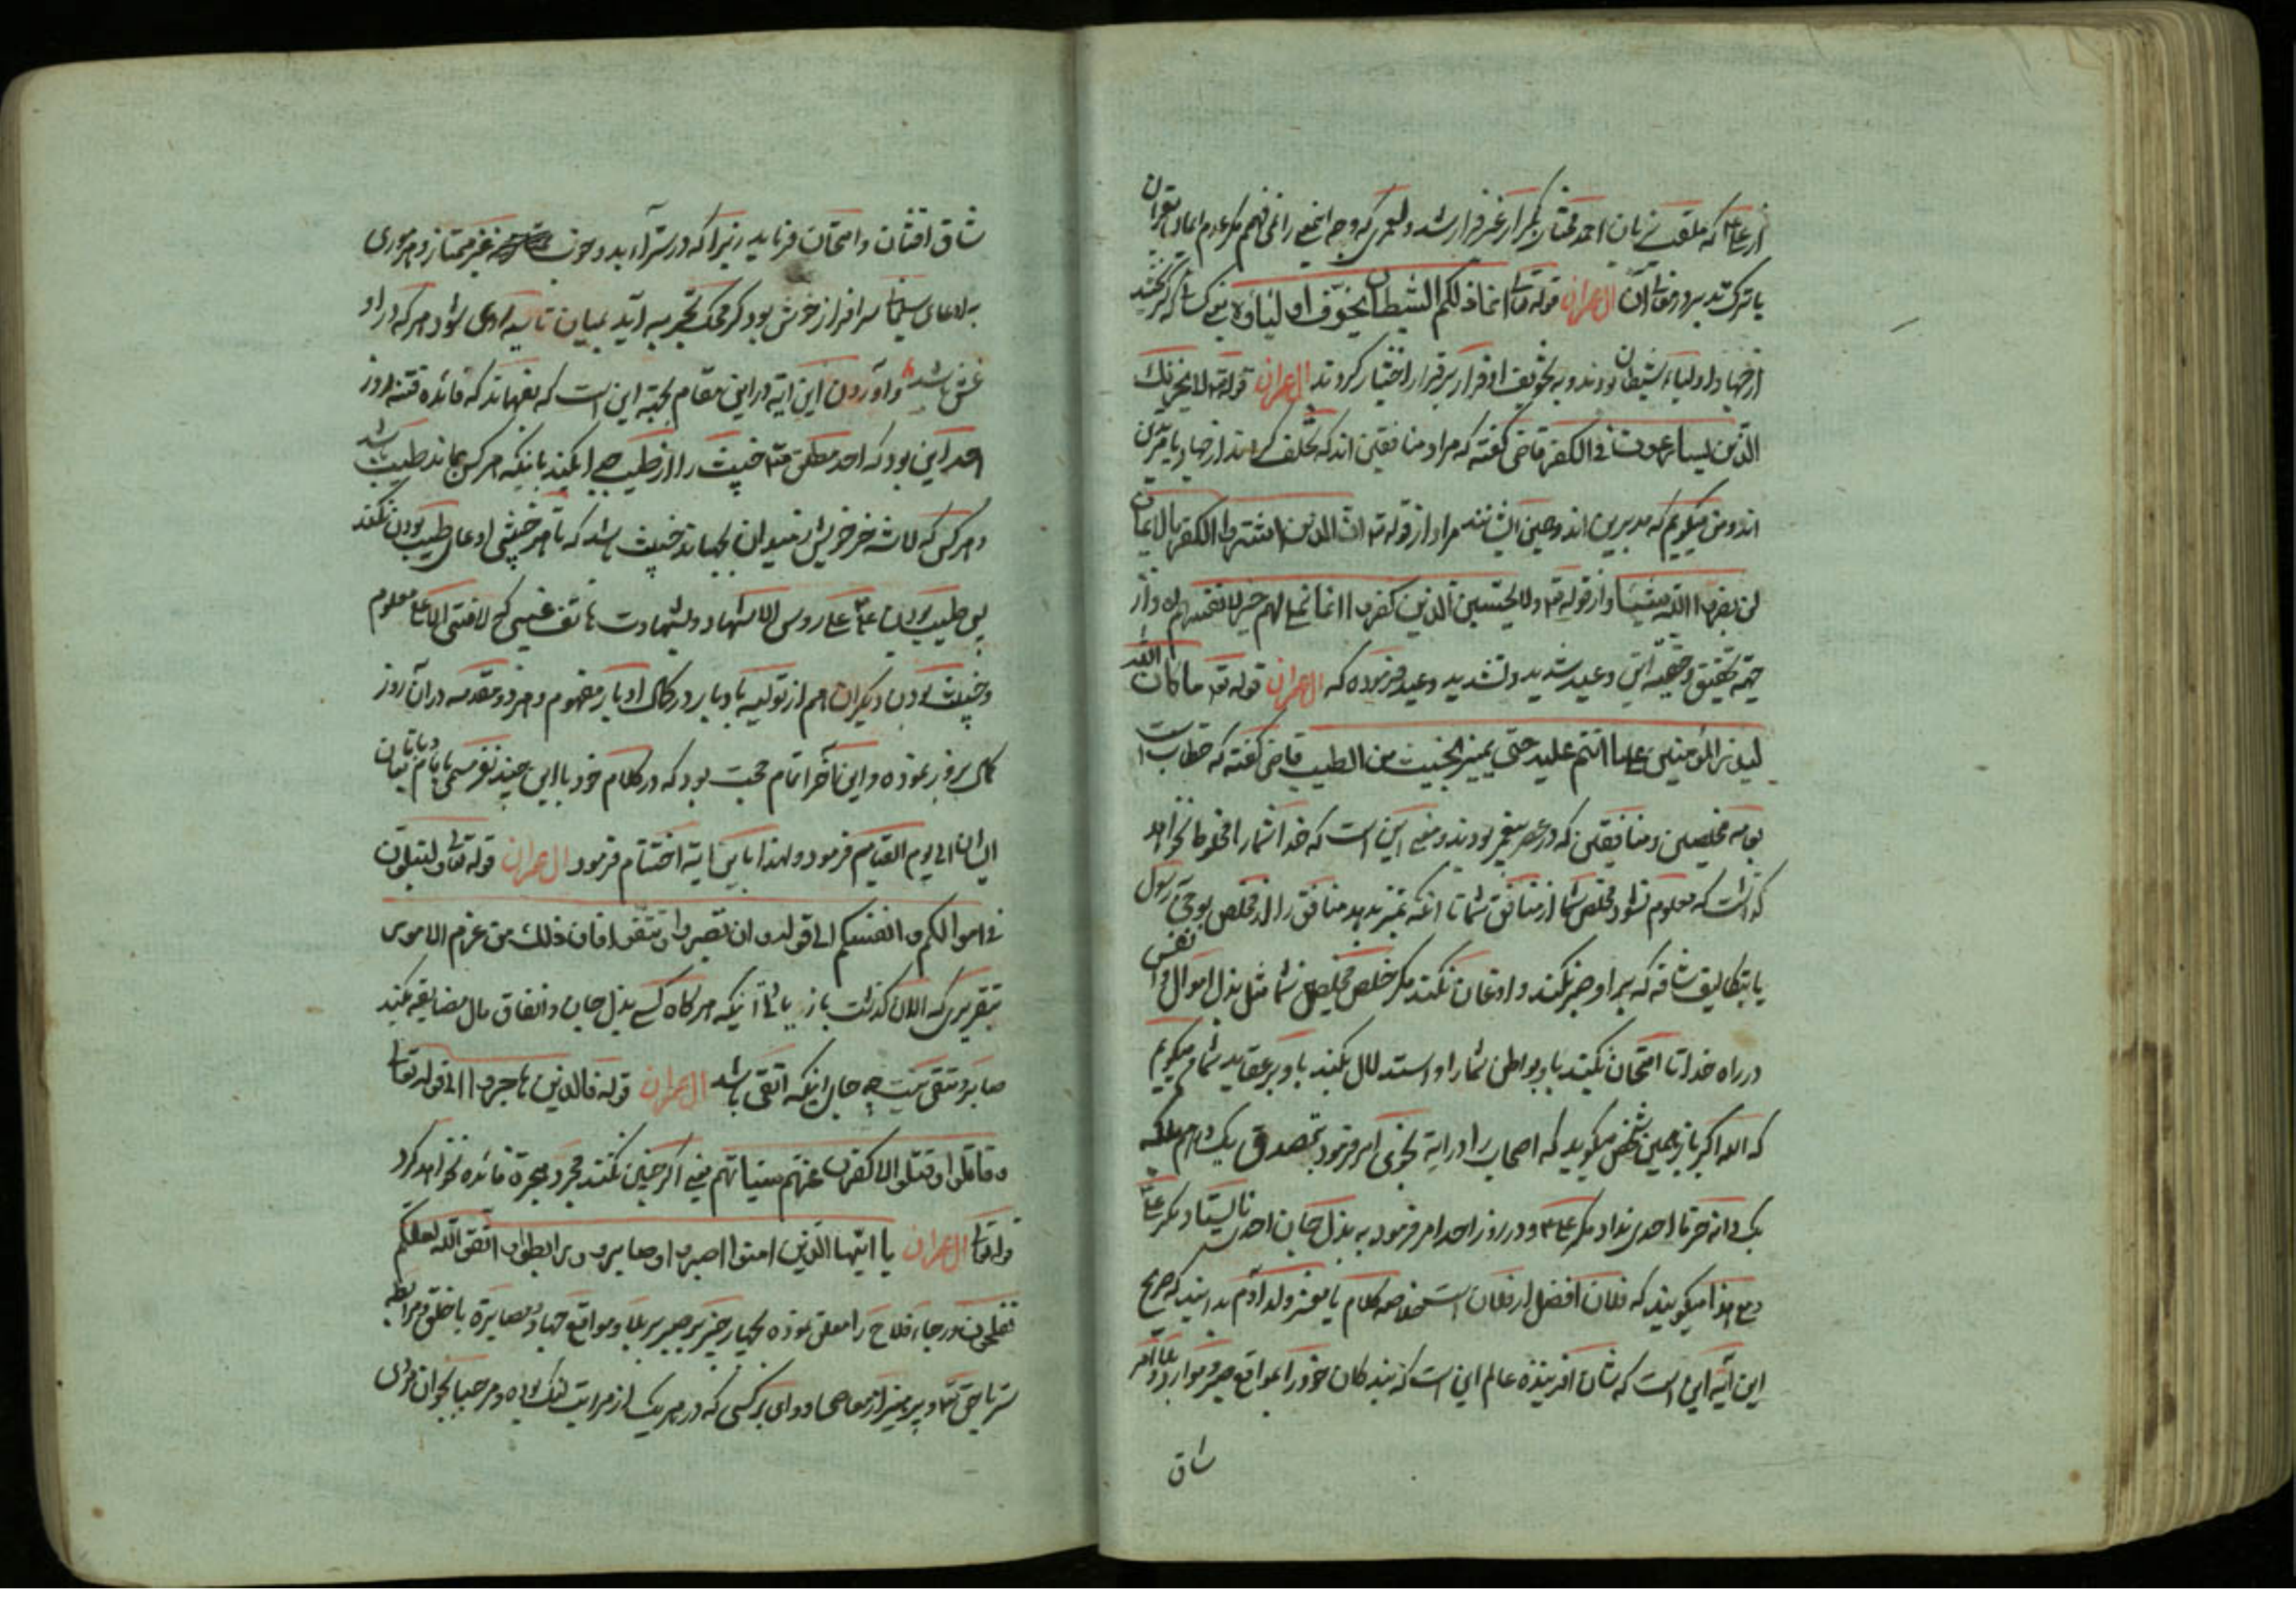 که ملقب بزبان احمد مختار بکرار غیر فرار شد و لعمری که وجه این معنی را نمی فهمم مگر عدم ایمان بقرآن
یا ترک تدبر در آن آل عمران قوله تعالی انما ذلکم الشیطان یخوف اولیاؤه یعنی کسانی که گریختند
از جهاد اولیاء شیطان بودند و به تخویف او فرار بر قرار اختیار کردند آل عمران قوله تعالی لا یحزنک
الذین یسارعون فی الکفر قاضی گفته که مراد منافقین اند که تخلف کردند از جهاد یا مرتدین
اند و من میگویم که مدبرین اند و همین ایشانند مراد از قوله تعالی ان الذین اشتروا الکفر بالایمان
لن یضروا الله شیئا و از قوله تعالی ولا یحسبن الذین کفروا انما نملی لهم خیر لانفسهم و از
وعید شدید و تشدید وعید فرموده که آل عمران قوله تعالی ما کان الله
لیذر المؤمنین علی ما انتم علیه حتی یمیز الخبیث من الطیب قاضی گفته که خطاب است
بعامه مخلصین و منافقین که در عصر پیغمبر بودند و معنی این است که خدا شما را مخلوط نخواهد
گذاشت که معلوم نشود مخلص شما از منافق شما تا آنکه تمیز بدهد منافق را از مخلص بوحی بر رسول
یا بتکالیف شاقه که بر او صبر نکند و اذعان نکند مگر خلص مخلصین شما مثل بذل اموال و نفس
در راه خدا تا امتحان بکند باو بواطن شما را و استدلال بکند باو بر عقاید شما و میگویم
که الله اکبر باز همین شخص میگوید که اصحاب را در آیه نجوی امر فرمود بتصدق یک درهم بلکه
یک دانه خرما احدی نداد مگر علی و در روز احد امر فرمود به بذل جان احدی نایستاد مگر علی
و مع هذا میگویند که فلان افضل از فلان است خلاصه کلام یا معشر ولد آدم بدانید که صریح
این آیه این است که شان آفریننده عالم این است که بندگان خود را بمواقع صبر و موارد بلا و امر
شاق
شاق افتنان و امتحان فرماید زیرا که در سراء بد و خوب غیر ممتاز و هر موری
به ادعای سلیمانی سرافراز خوش بود گر محک تجربه آید بمیان تا سیه روی شود هر که در او
غش باشد و آوردن این آیه در این مقام بجهة این است که بفهماند که فائده فتنه روز
احد این بود که احد مطلق خبیث را از طیب جدا بکند باینکه هر کس بماند طیب باشد
و هر کس که لاشه خر خویش از میدان بجهاند خبیث باشد که تا هر خبیثی ادعای طیب بودن نکند
پس طیب بودن علی علی رؤس الاشهاد و بشهادت هاتف غیبی که لا فتی الا علی معلوم
و خبیث بودن دیگران هم از تولیه بادبار در کمال ادبار مفهوم و هر دو مقدمه در آن روز
کمال بروز نموده و این آخر اتمام حجت بود که در کلام خود با این چند نفر مسمی بایمان
ایشان الی یوم القیامه فرمود و لهذا باین آیه اختتام فرمود آل عمران قوله تعالی لتبلون
فی اموالکم و انفسکم الی قوله و ان تصبروا و تتقوا فان ذلک من عزم الامور
بتقریری که الان گذشت باز باقی اینکه هر گاه کسی بذل جان و انفاق مال مضایقه بکند
صابر و متقی نیست چه جای اینکه اتقی باشد آل عمران قوله فالذین هاجروا الی قوله تعالی
و قاتلوا و قتلوا لاکفرن عنهم سیئاتهم یعنی اگر چنین نکنند مجرد هجرة فائده نخواهد کرد
قوله تعالی آل عمران یا ایها الذین امنوا اصبروا و صابروا و رابطوا و اتقوا الله لعلکم
تفلحون و رجاء فلاح را معلق نموده بچهار چیز بر صبر بر بلا و مواقع جهاد و مصابرة با خلق و مرابطه
سر با حق تعالی و پرهیز از معاصی و وای بر کسی که در هر یک از مراتب لنگ بوده و مرحبا بجوانمردی